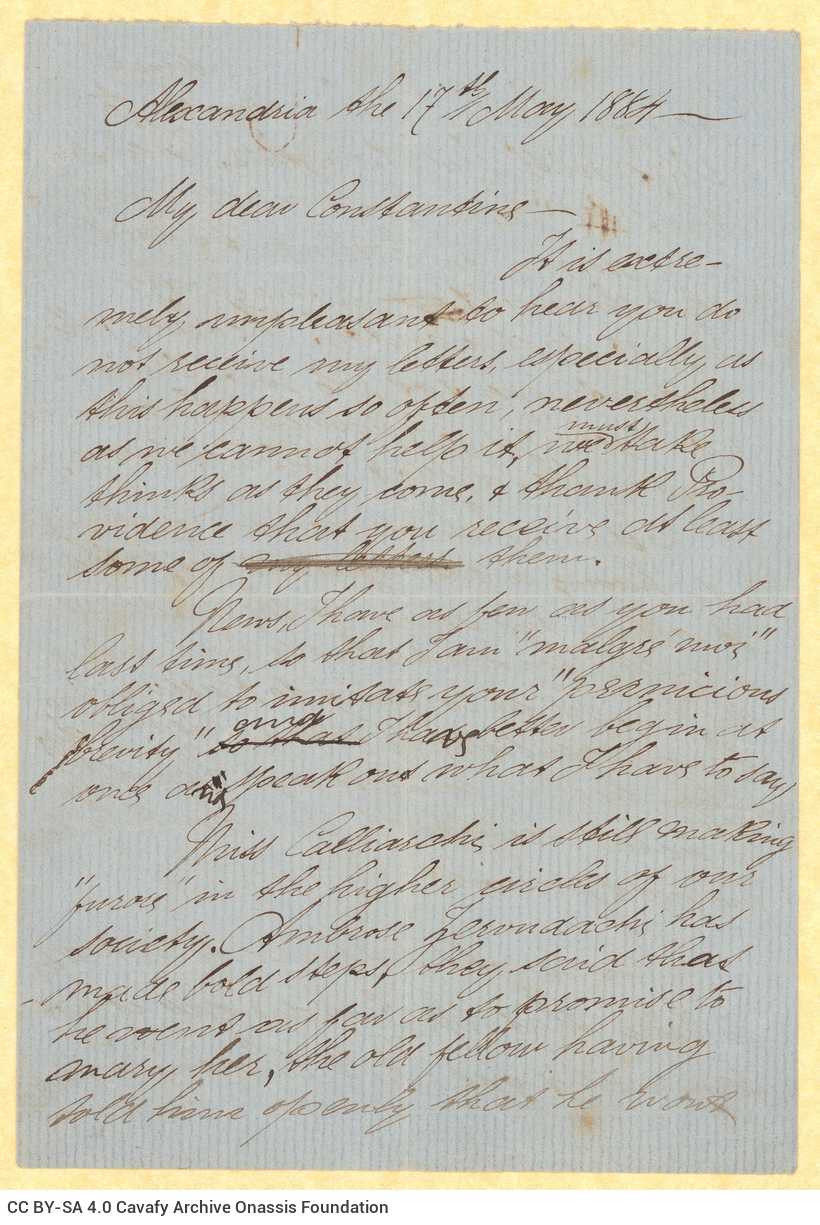 Alexandria the 17th May 1884 —
My dear Constantine —
It is extre-
mely unpleasant to hear you do
not receive my letters, especially, as
this happens so often, nevertheless
as we cannot help it, we must take
thinks as they come, & thank Pro-
vidence that you receive at least
some of my letters them.
News, I have as few as you had
last time, so that I am "malgré moi"
obliged to imitate your "pernicious
brevity" so that and I have better begin at
once and speak out what I have to say,
Miss Calliarchi, is still making
"furore" in the higher circles of our
society. Ambrose Zervudachi has
made bold steps, they said that
he went as far as to promise to
marry her, the old fellow having
told him openly that he wont
CC BY-SA 4.0 Cavafy Archive Onassis Foundation